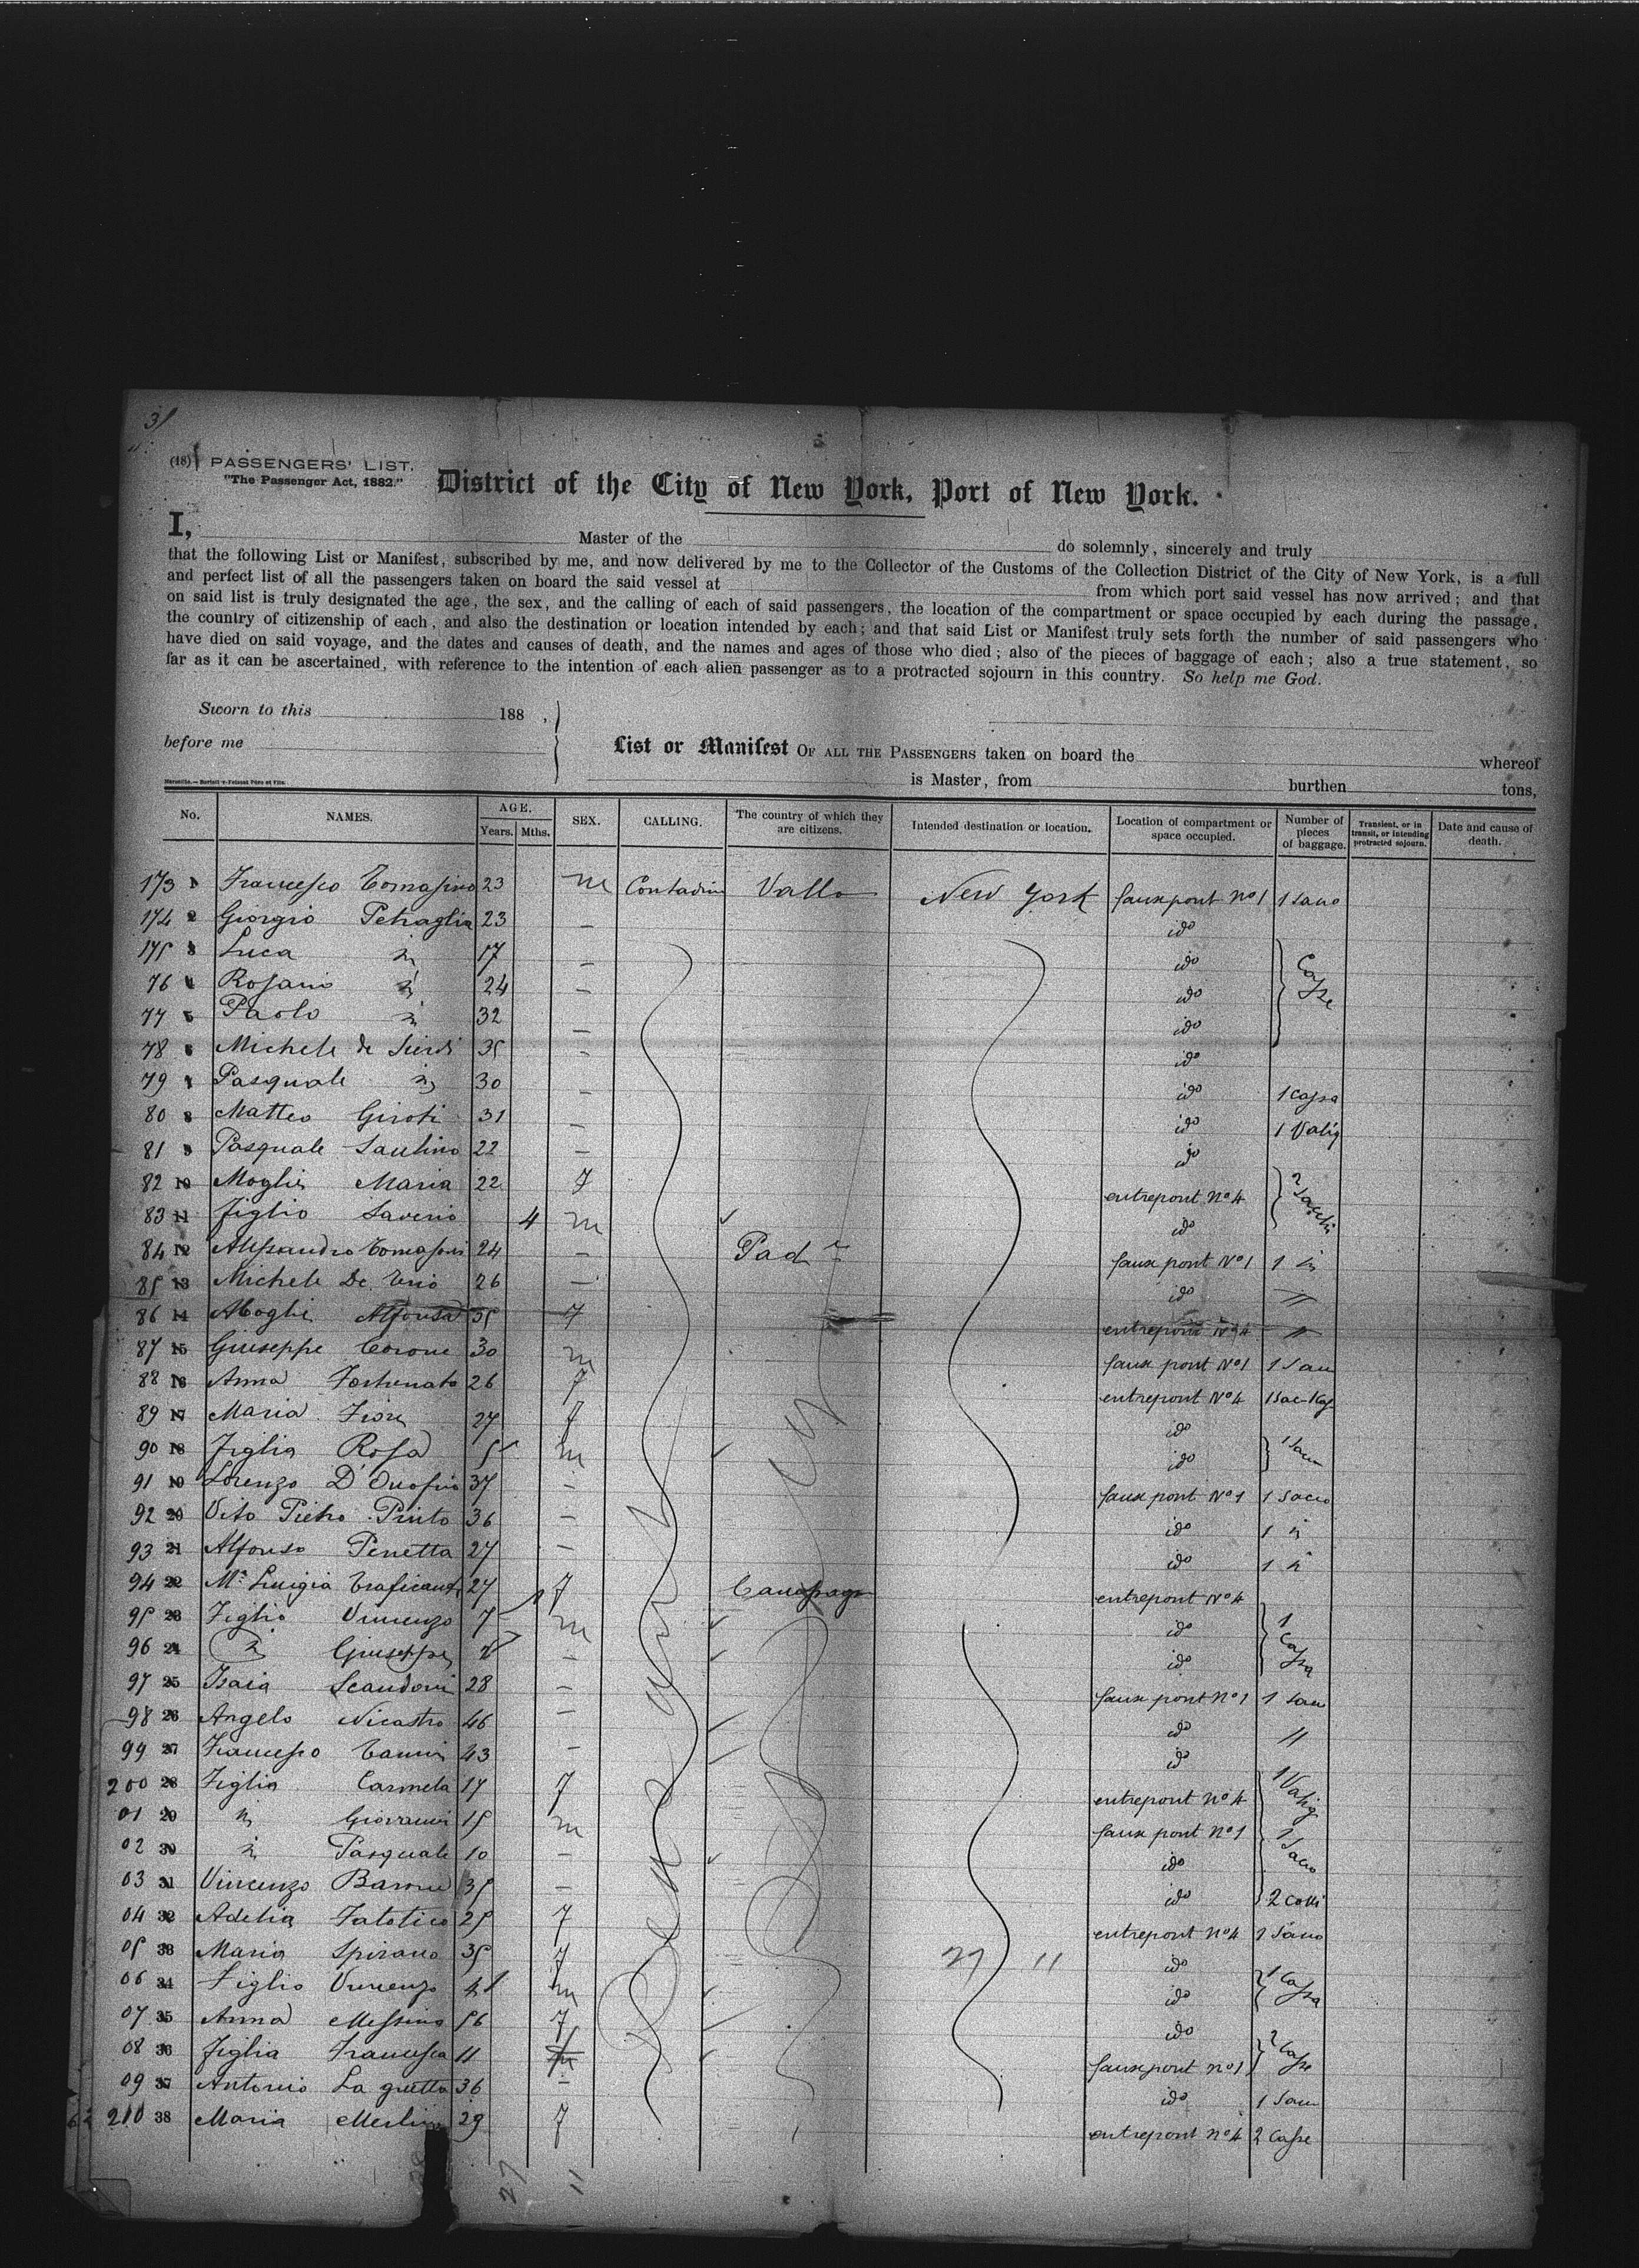 31
(18) PASSENGERS' LIST.
"The Passenger Act, 1882."
District of the City of New York, Port of New York.
I, Master of the do solemnly, sincerely and truly
that the following List or Manifest, subscribed by me, and now delivered by me to the Collector of the Customs of the Collection District of the City of New York, is a full
and perfect list of all the passengers taken on board the said vessel at from which port said vessel has now arrived; and that
on said list is truly designated the age, the sex, and the calling of each of said passengers, the location of the compartment or space occupied by each during the passage,
the country of citizenship of each, and also the destination or location intended by each; and that said List or Manifest truly sets forth the number of said passengers who
have died on said voyage, and the dates and causes of death, and the names and ages of those who died; also of the pieces of baggage of each; also a true statement, so
far as it can be ascertained, with reference to the intention of each alien passenger as to a protracted sojourn in this country. So help me God.
Sworn to this 188 ,
before me
List or Manifest OF ALL THE PASSENGERS taken on board the whereof
is Master, from burthen tons,
No. NAMES. AGE. Years. Mths. SEX. CALLING. The country of which they are citizens. Intended destination or location. Location of compartment or space occupied. Number of pieces of baggage. Transient, or in transit, or intending protracted sojourn. Date and cause of death.
173 1 Francesco Tomasino 23 m Contadini Vallo New York faux pont No 1 1 sacco
174 2 Giorgio Petraglia 23 – ido
175 3 Luca 17 – ido
76 4 Rosario 24 – ido Casse
77 5 Paolo 32 – ido
78 6 Michele de 35 – ido
79 7 Pasquale 30 – ido 1 Cassa
80 8 Matteo Giroti 31 – ido 1 Valig
81 9 Pasquale Saulino 22 – ido
82 10 Moglie Maria 22 f entrepont No 4 2 Sacchi
83 11 Figlio Saverio 4 m ido
84 12 Alessandro Tomasini 24 – Pad faux pont No 1 1
85 13 Michele De 26 – ido "
86 14 Moglie Alfonsa 35 f entrepont No 4 "
87 15 Giuseppe Corone 30 m faux pont No 1 1 Sac
88 16 Anna Fortunato 26 f entrepont No 4
89 17 Maria Fiore 27 f ido
90 18 Figlia Rosa 5 m ido 1 Sacco
91 19 Lorenzo D'Onofrio 37 – faux pont No 1 1 Sacco
92 20 Vito Pietro Pinto 36 – ido 1
93 21 Alfonso Penetta 27 – ido 1
94 22 Ma Luigia 27 f Campagn entrepont No 4
95 23 Figlio Vincenzo 7 m ido 1 Cassa
96 24 Giuseppe 2 – ido
97 25 Isaia Scandoni 28 – faux pont No 1 1 Sacco
98 26 Angelo Nicastro 46 – ido "
99 27 Francesco 43 – id
200 28 Figlia Carmela 17 f entrepont No 4 1 Valig
01 29 Giovanni 15 m faux pont No 1 1 Sacco
02 30 Pasquale 10 – ido
03 31 Vincenzo Barone 35 – ido 2 Colli
04 32 Adelia Fatotico 25 f entrepont No 4 1 Sacco
05 33 Maria Spirano 35 f 27 11 ido
06 34 Figlio Vincenzo 4 m ido 1 Cassa
07 35 Anna Messina 56 f ido
08 36 Figlia Francesca 11 f faux pont No 1 2 Casse
09 37 Antonio La guetta 36 – ido 1 Sacco
210 38 Maria 29 f entrepont No 4 2 Casse
27 11